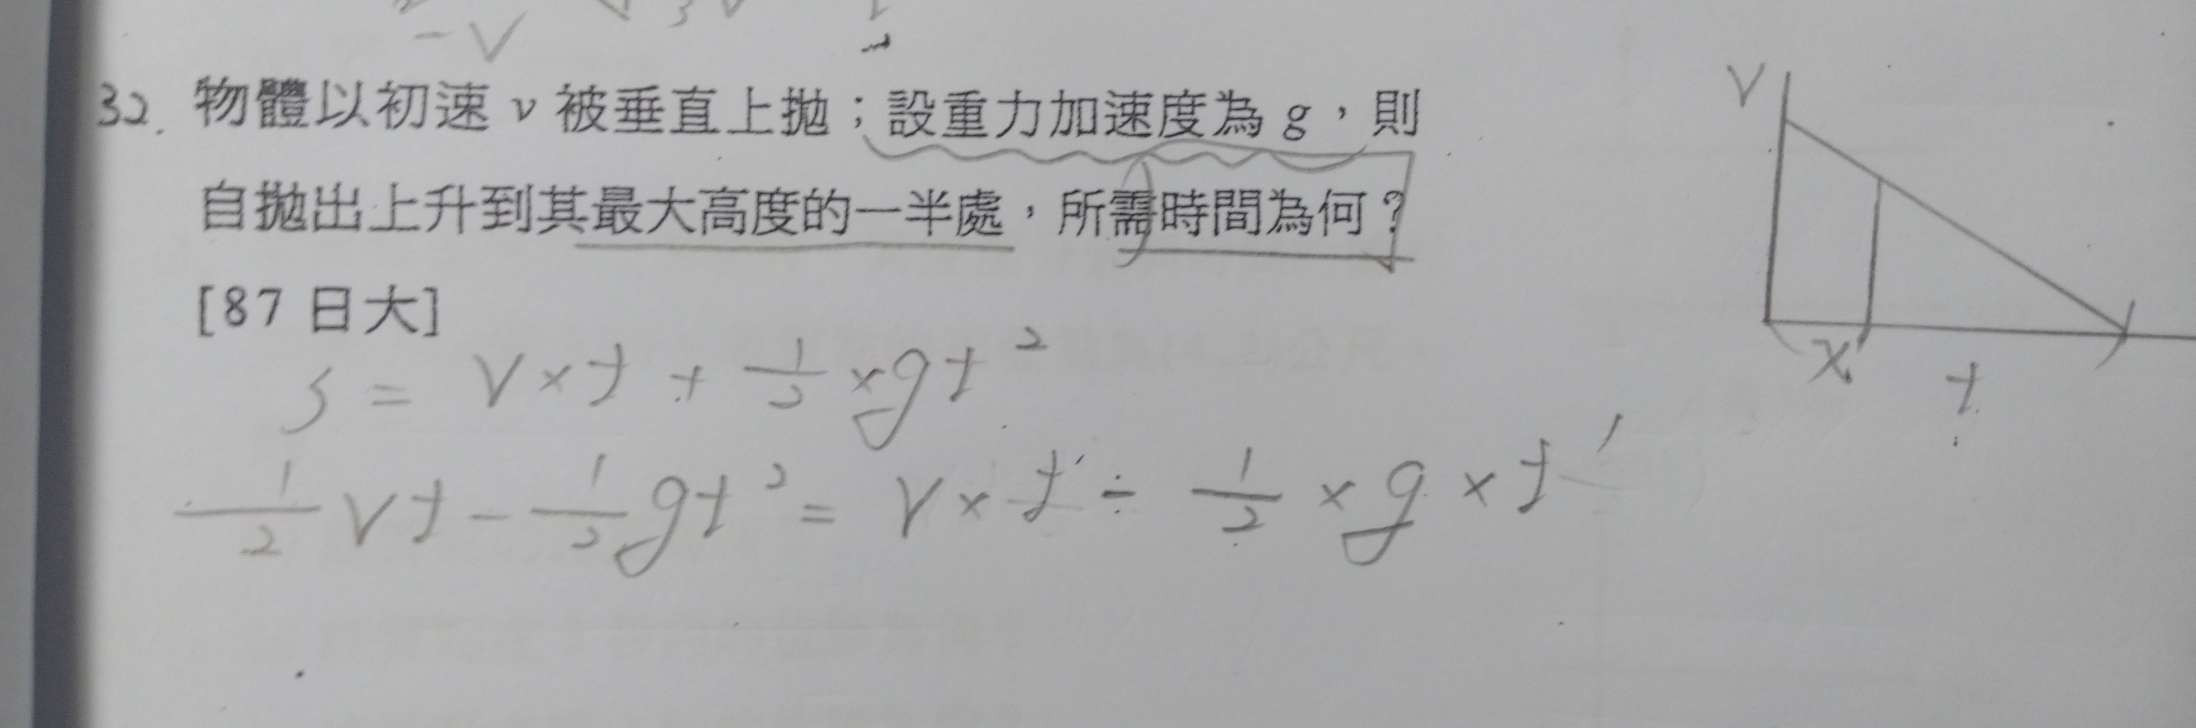 -V
32. 物體以初速 v 被垂直上拋；設重力加速度為 g，則
自拋出上升到其最大高度的一半處，所需時間為何？
[87 日大]
S = V×t + 1/2 ×gt²
1/2 Vt - 1/2 gt² = V×t' ÷ 1/2 ×g×t'
V
x
t